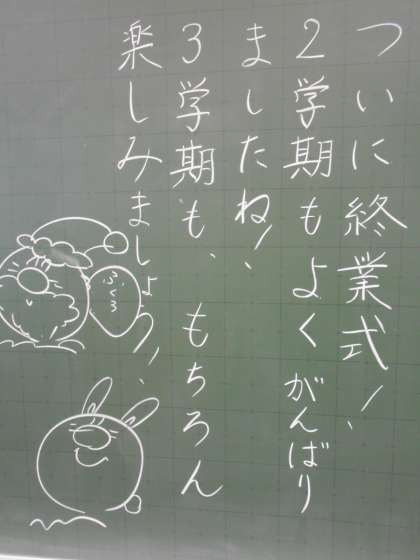 ついに終業式!
2学期もよくがんばり
ましたね!
3学期も、もちろん
楽しみましょう!
ふくろ